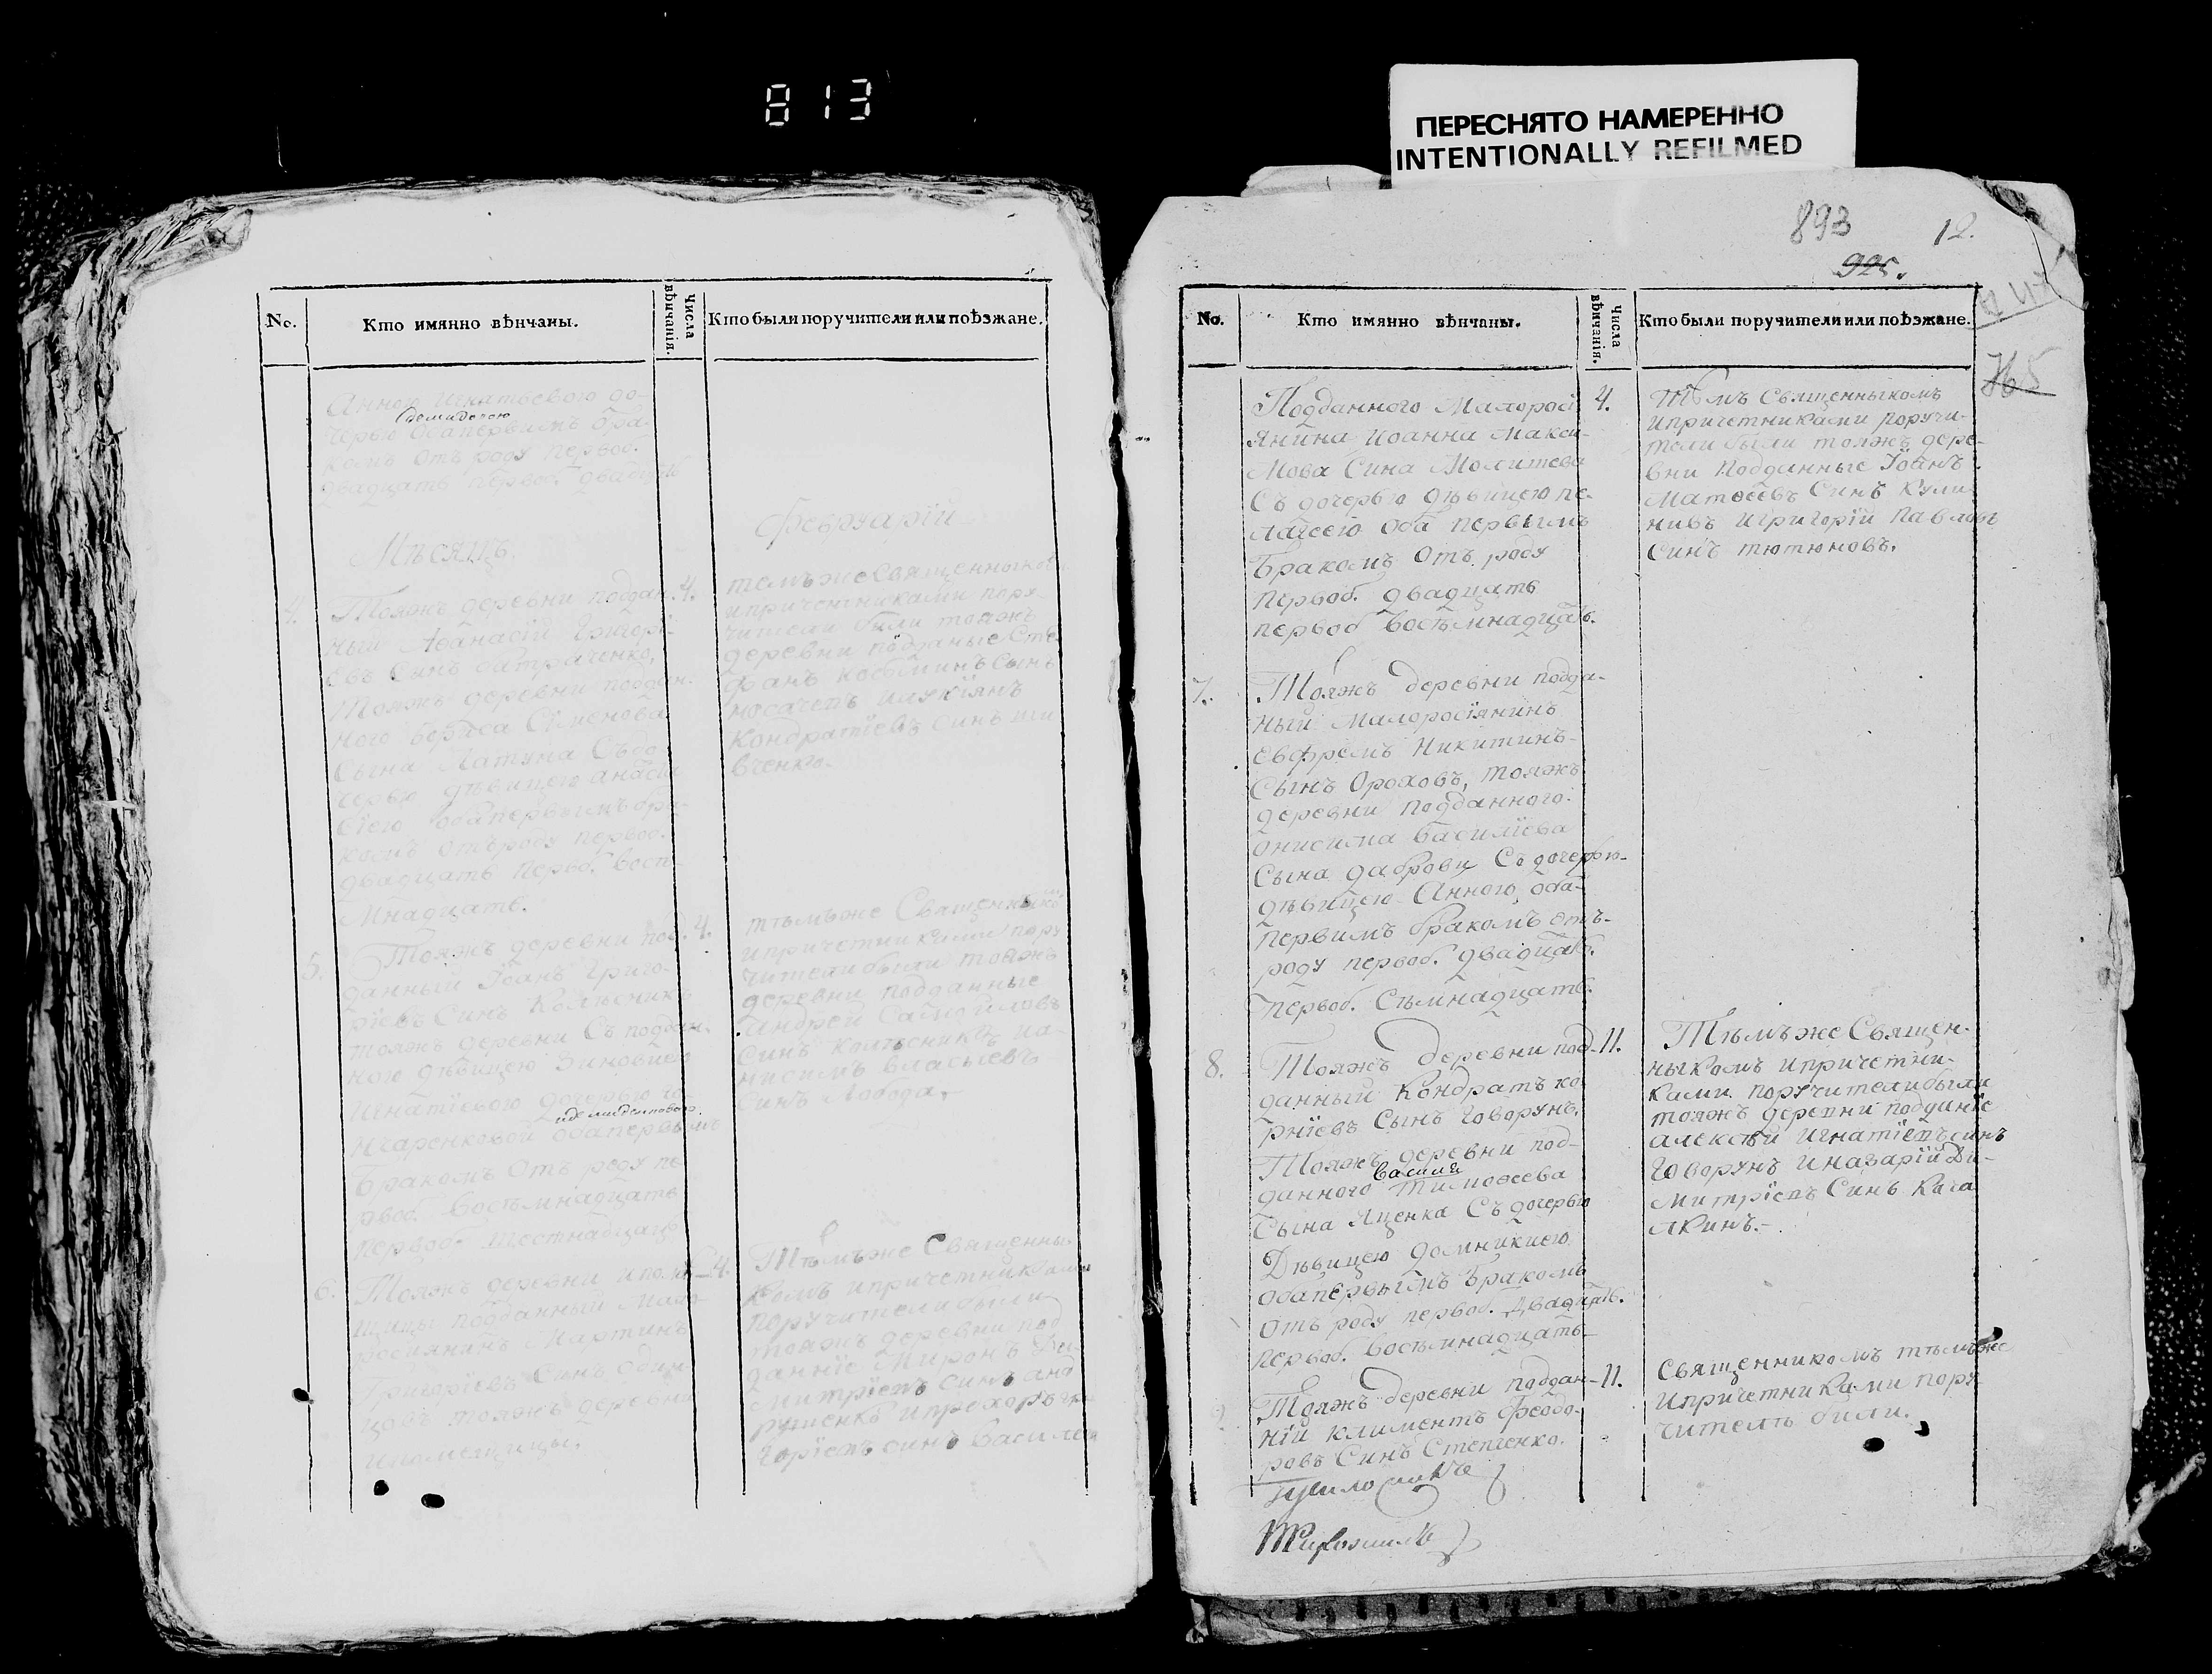 813
ПЕРЕСНЯТО НАМЕРЕННО
INTENTIONALLY REFILMED
893
12.
925.
765
No.
Кто имянно вѣнчаны.
Числа вѣнчанія.
Кто были поручители или поѣзжане.
Анною Игнатьевою до-
черью оба первымъ бра-
комъ отъ роду первой.
двадцать первой двадцать
Мѣсяцъ
Февруарій
4.
Тояжъ деревни поддан-
ный Афанасій Григорі-
евъ Синъ
Тояжъ деревни поддан-
ного Бориса Семенова
Сына Латуна Съ до-
черью дѣвицею Анаста-
сіею оба первымъ бра-
комъ отъ роду первой.
двадцать первой. восѣ-
мнадцать.
4.
темъ же Священникомъ
и причетниками пору-
чители были тояжъ
деревни подданые Сте-
фанъ Косминъ Сынъ
Носачевъ
Кондратіевъ Синъ
вченко.
5.
Тояжъ деревни под-
данный Іоанъ Григо-
ріевъ Синъ Колѣсникъ
тояжъ деревни Съ поддан-
ною дѣвицею Зиновіею
Игнатіевою дочерью
оба первымъ
Бракомъ Отъ роду пе-
рвой. восѣмнадцать
первой. шестнадцать
4.
тѣмъ же Священникомъ
и причетниками пору-
чители были тояжъ
деревни подданные
Андрей Самойловъ
Синъ Колѣсникъ и о-
нисимъ Власьевъ
Синъ Лобода.
6.
Тояжъ деревни и помѣ-
щицы подданный Мало-
росиянинъ Мартинъ
Григоріевъ Синъ Один-
цовъ тояжъ деревни
и помещицы.
4.
Тѣмъ же Священни-
комъ и причетниками
поручители были
тояжъ деревни под-
данніе Миронъ Ди-
митріевъ синъ Анд-
рущенко и Прохоръ Гри-
горіевъ синъ Василен
No.
Кто имянно вѣнчаны.
Числа вѣнчанія.
Кто были поручители или поѣзжане.
Подданного Малорос-
янина Иоанна Макси-
мова Сина Молитева
Съ дочерью дѣвицею пе-
лагеею оба первымъ
Бракомъ Отъ роду
первой. двадцать
первой восѣмнадцать.
4.
Тѣмъ Священныкомъ
и причетниками поручи-
тели были тояжъ дере-
вни подданные Іоанъ
Матвеевъ Синъ Кули-
нивъ и Григорій Павловъ
синъ тютюновъ.
7.
Тояжъ деревни подда-
ный Малоросіянинъ
Евфремъ Никитинъ
Сынъ Ороховъ, тояжъ
деревни подданного.
Онисима Василіева
Сына Дабровы Съ дочерью
дѣвицею Анною, оба
первимъ бракомъ отъ
роду первой. двадцать.
первой. Сѣмнадцать.
8.
Тояжъ деревни под-
данный Кондратъ Ко-
рніевъ Сынъ Говорунъ.
Тояжъ деревни под-
Василя
данного Тимофеева
Сына Яценка Съ дочерью
Дѣвицею Домникиею
оба первымъ Бракомъ
Отъ роду первой. двадцать.
первой. восѣмнадцать
11.
Тѣмъ же Священ-
ныкомъ и причетни-
ками. поручители были
тояжъ деревни подданіе
Алексѣй Игнатіевъ синъ
Говорунъ и Назарій Ди-
митріевъ Синъ Кага
лкинъ.
Тояжъ деревни поддан-
ній Климентъ Феодо-
ровъ Синъ Степченко.
11.
Священникомъ тѣмъ же
и причетниками пору
чителѣ были.